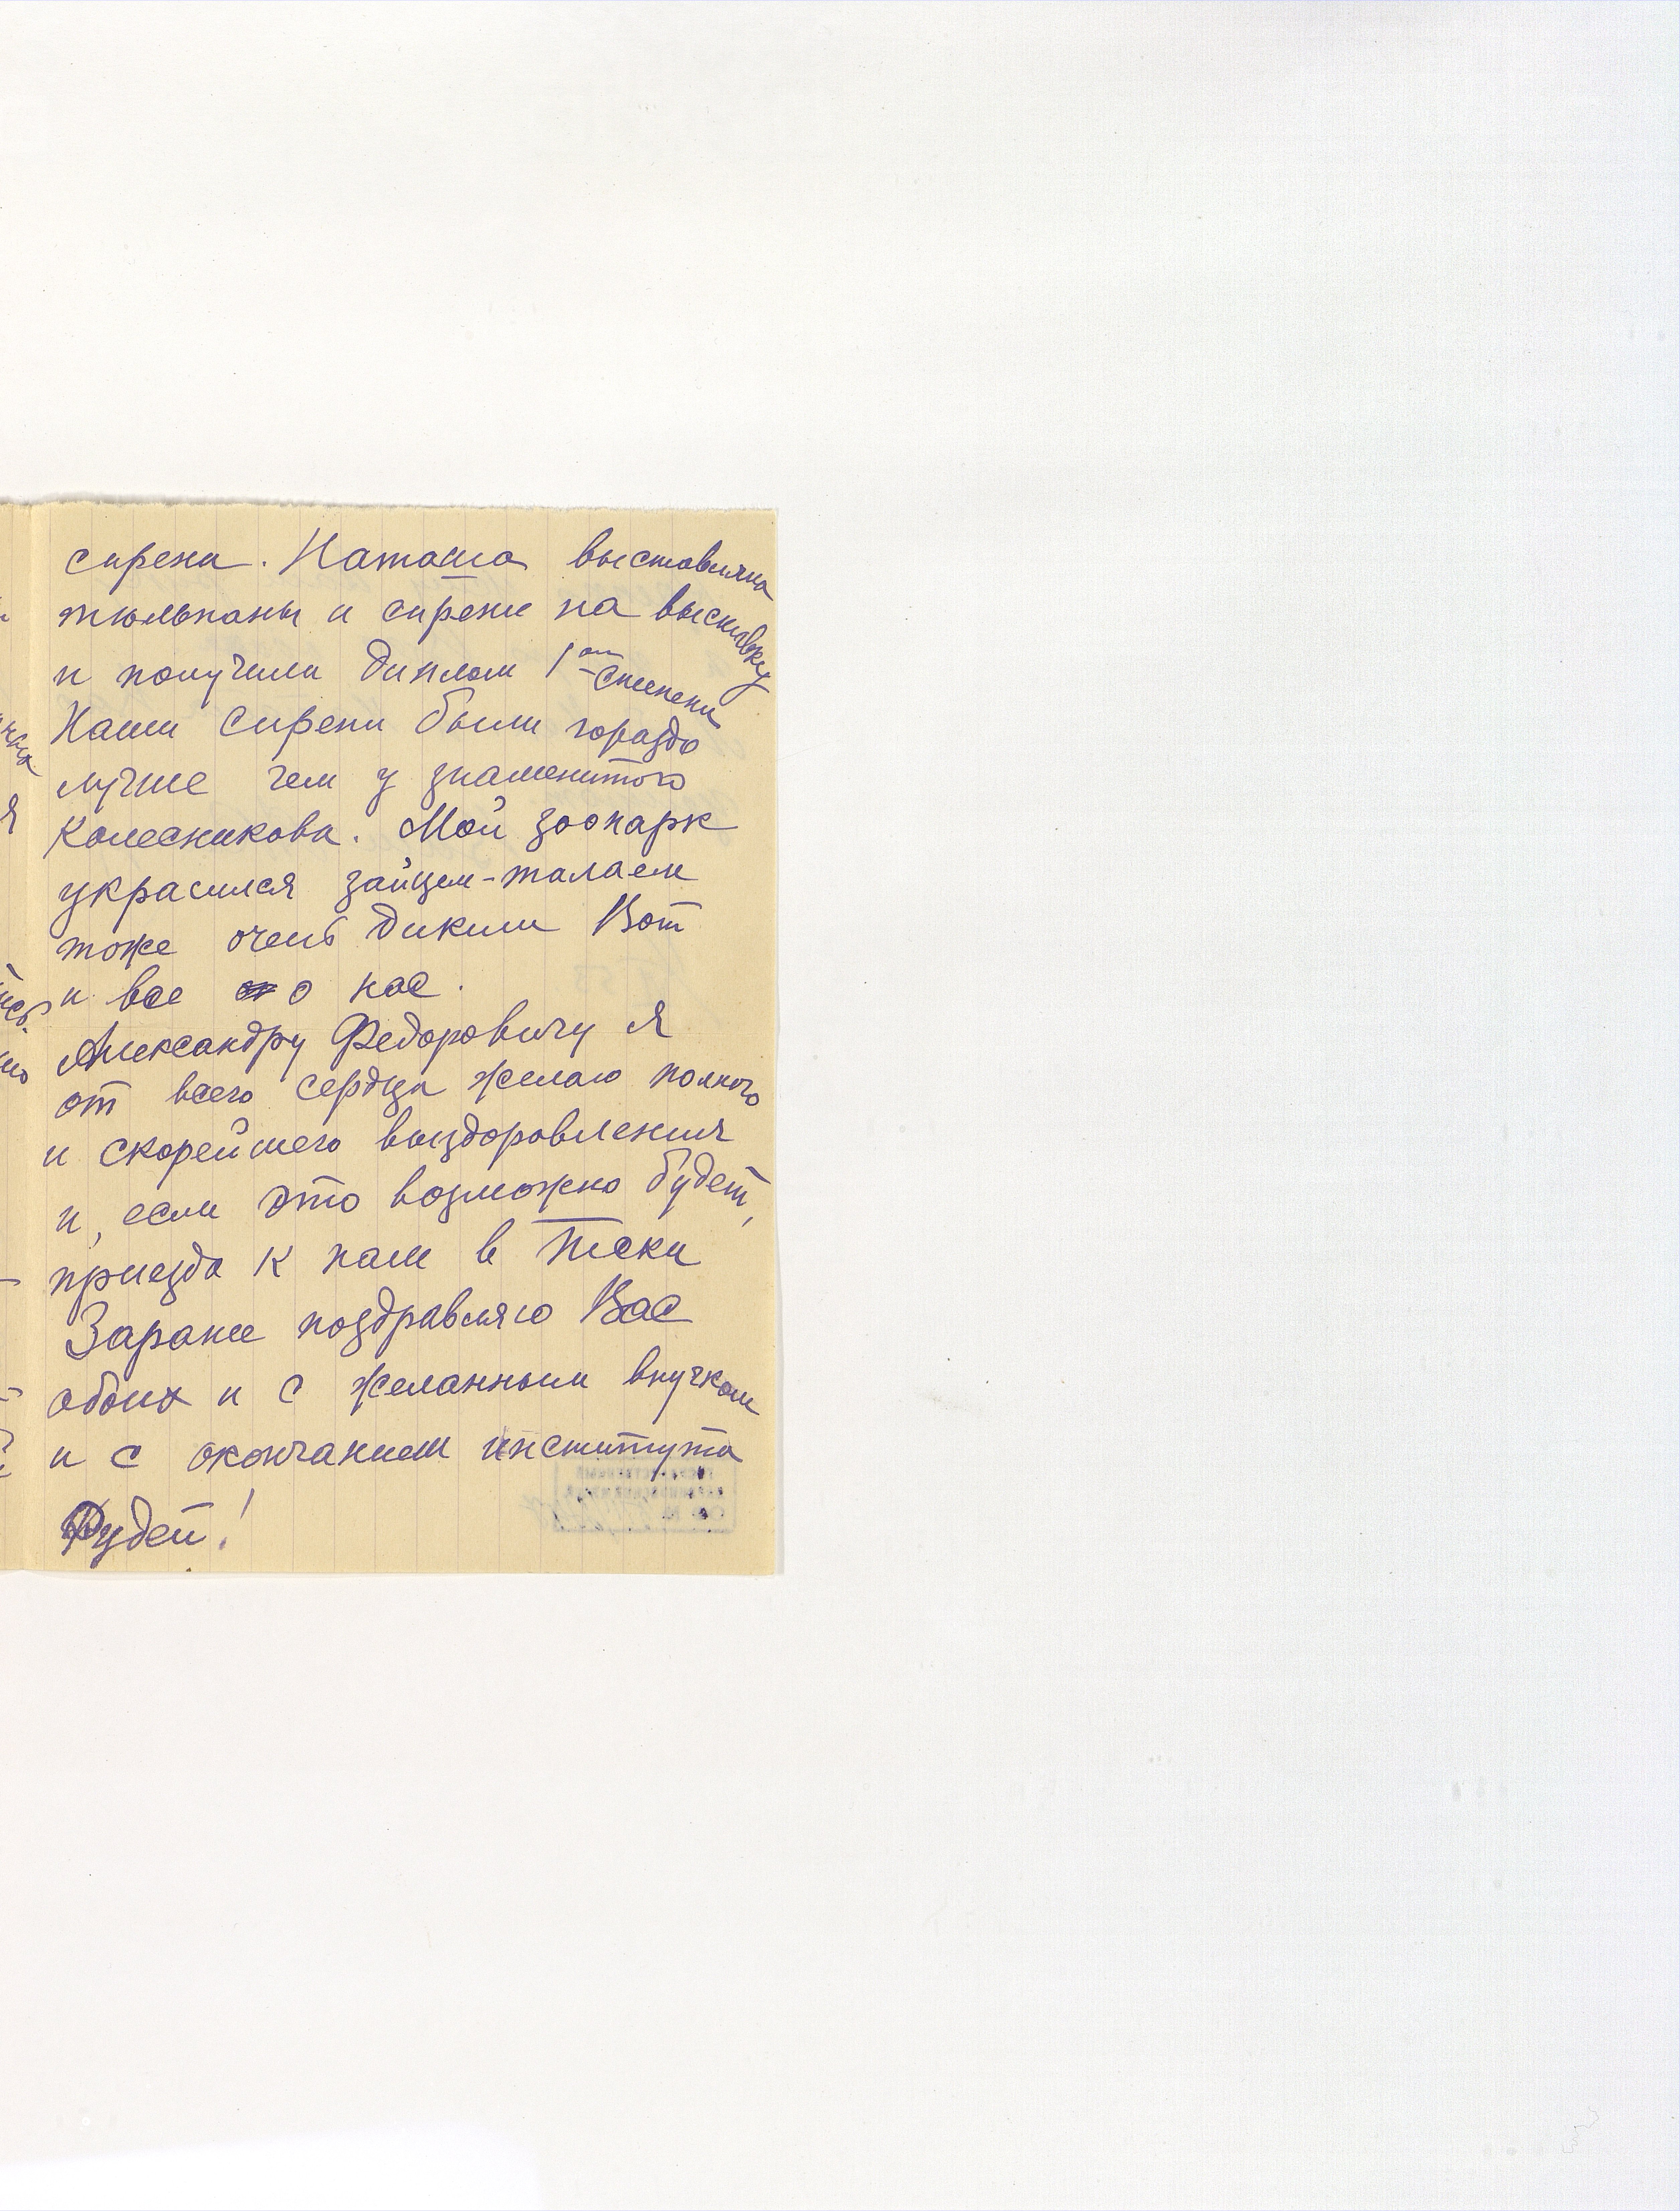 сирени. Наташа выставляла
тюльпаны и сирени на выставку
и получила диплом 1ой степени
Наши сирени были гораздо
лучше чем у знаменитого
Колесникова. Мой зоопарк
украсился зайцем-талаем
тоже очень диким Вот
и все о нас.
Александру Федоровичу я
от всего сердца желаю полного
и скорейшего выздоровления
и, если это возможно будет,
приезда к нам в Пески
Заранее поздравляю Вас
обоих и с желанным внучком
и с окончанием института
Рудей!